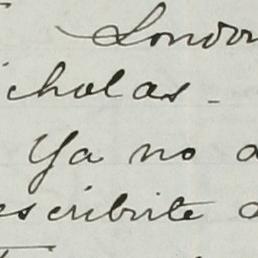 London
icholas -
Ya no a
escribirte a